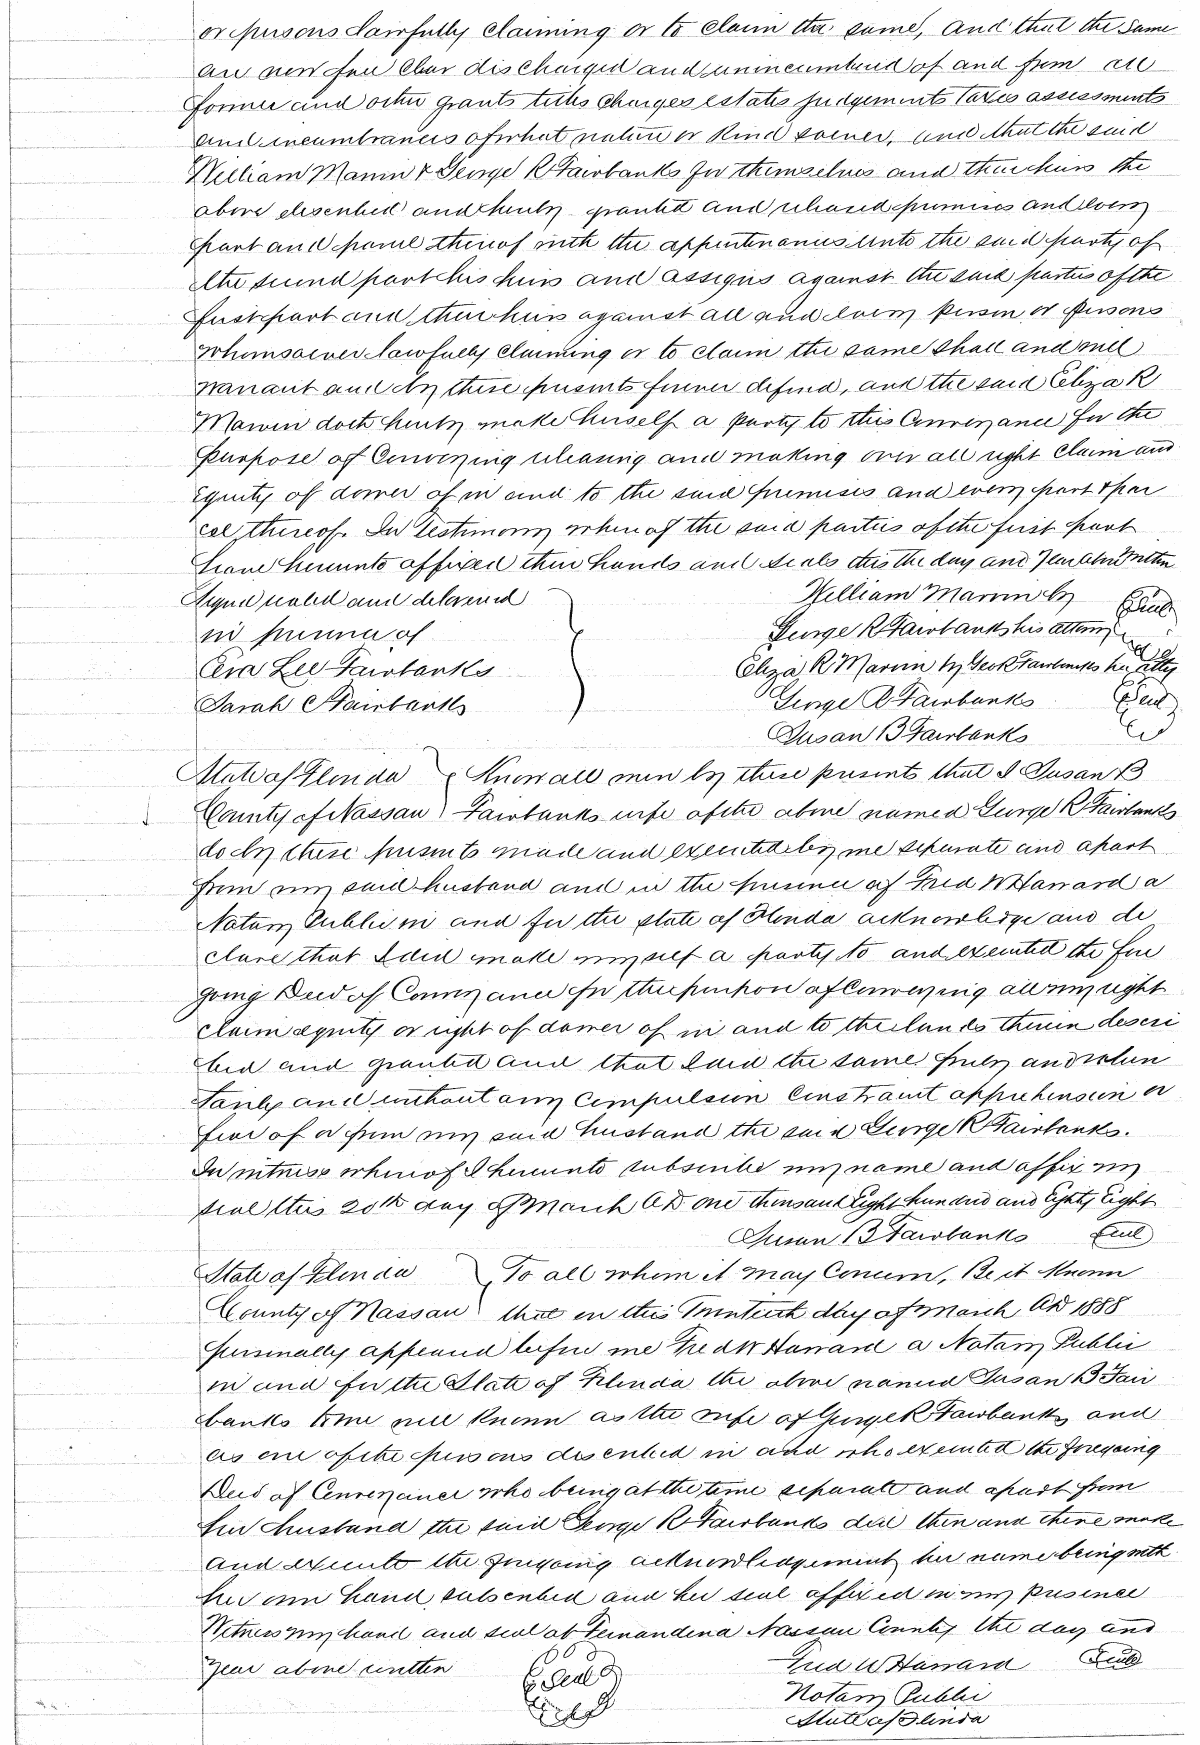 or persons lawfully claiming or to claim the same, and that the same
are now free clear discharged and unincumbered of and from all
former and other grants titles charges estates judgements taxes assessments
and incumbrances of what nature or kind soever, and that the said
William Marvin & George R Fairbanks for themselves and their heirs the
above described and hereby granted and released premises and every
part and parcel thereof with the appurtenances unto the said party of
the second part his heirs and assigns against the said parties of the
first part and their heirs against all and every person or persons
whomsoever lawfully claiming or to claim the same shall and will
warrant and by these presents forever defend, and the said Eliza R
Marvin doth hereby make herself a party to this Conveyance for the
purpose of Conveying releasing and making over all right claim and
equity of dower of in and to the said premises and every part & par
cel thereof. In Testimony whereof the said parties of the first part
have hereunto affixed their hands and seals this the day and Year above written
Signed sealed and delivered
in presence of
Eva Lee Fairbanks
Sarah C Fairbanks
William Marvin by Seal
George R Fairbanks his attorney
Eliza R Marvin by Geo R Fairbanks her atty
George R Fairbanks Seal
Susan B Fairbanks
State of Florida Know all men by these presents that I Susan B
County of Nassau Fairbanks wife of the above named George R Fairbanks
do by these presents made and executed by me separate and apart
from my said husband and in the presence of Fred W Harrard a
Notary Public in and for the state of Florida acknowledge and de
clare that I did make myself a party to and executed the fore
going Deed of Conveyance for the purpose of Conveying all my right
claim equity or right of dower of in and to the lands therein descri
bed and granted and that I did the same freely and volun
tarily and without any compulsion constraint apprehension or
fear of or from my said husband the said George R Fairbanks.
In witness whereof I hereunto subscribe my name and affix my
seal this 20th day of March AD one thousand Eight hundred and Eighty Eight
Susan B Fairbanks Seal
State of Florida To all whom it may Concern, Be it Known
County of Nassau that on this Twentieth day of March AD 1888
personally appeared before me Fred W Harrard a Notary Public
in and for the State of Florida the above named Susan B Fair
banks to me well known as the wife of George R Fairbanks and
as one of the persons described in and who executed the foregoing
Deed of Conveyance who being at the time separate and apart from
her husband the said George R Fairbanks did then and there make
and execute the foregoing acknowledgement her name being with
her own hand subscribed and her seal affixed in my presence
Witness my hand and seal at Fernandina Nassau County the day and
year above written
Seal
Fred W Harrard Seal
Notary Public
State of Florida